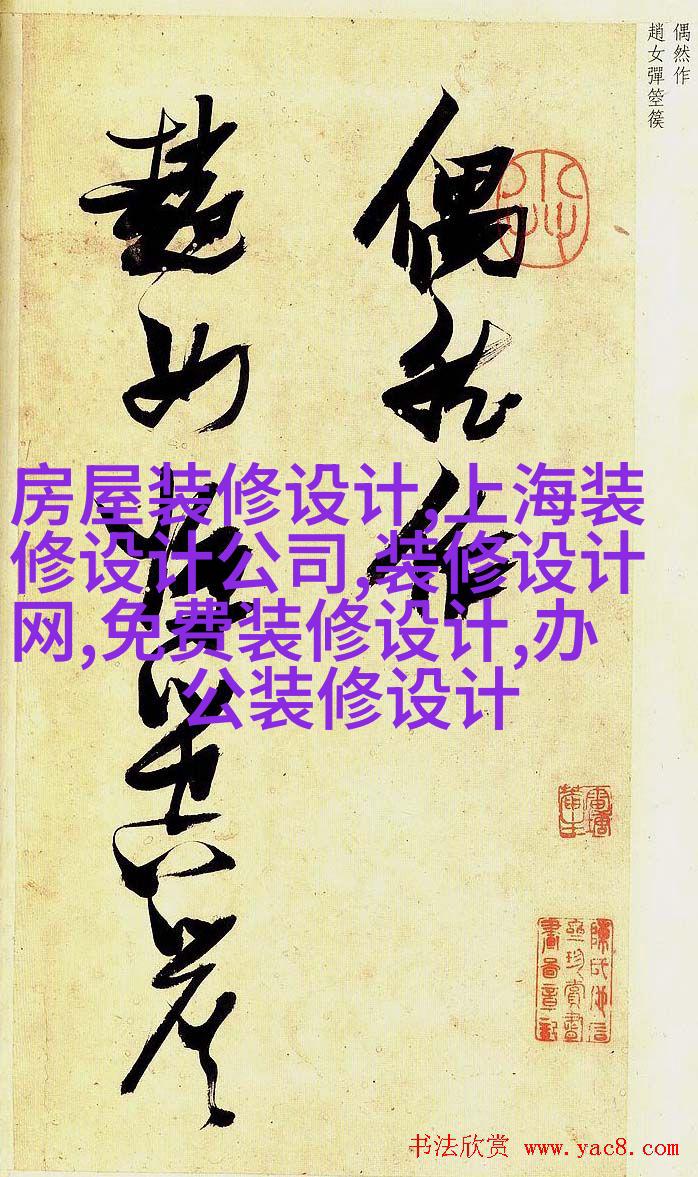 偶然作
趙女彈箜篌
偶然作
趙女彈箜篌
房屋装修设计,上海装
修设计公司,装修设计
网,免费装修设计,办
公装修设计
书法欣赏 www.yac8.com